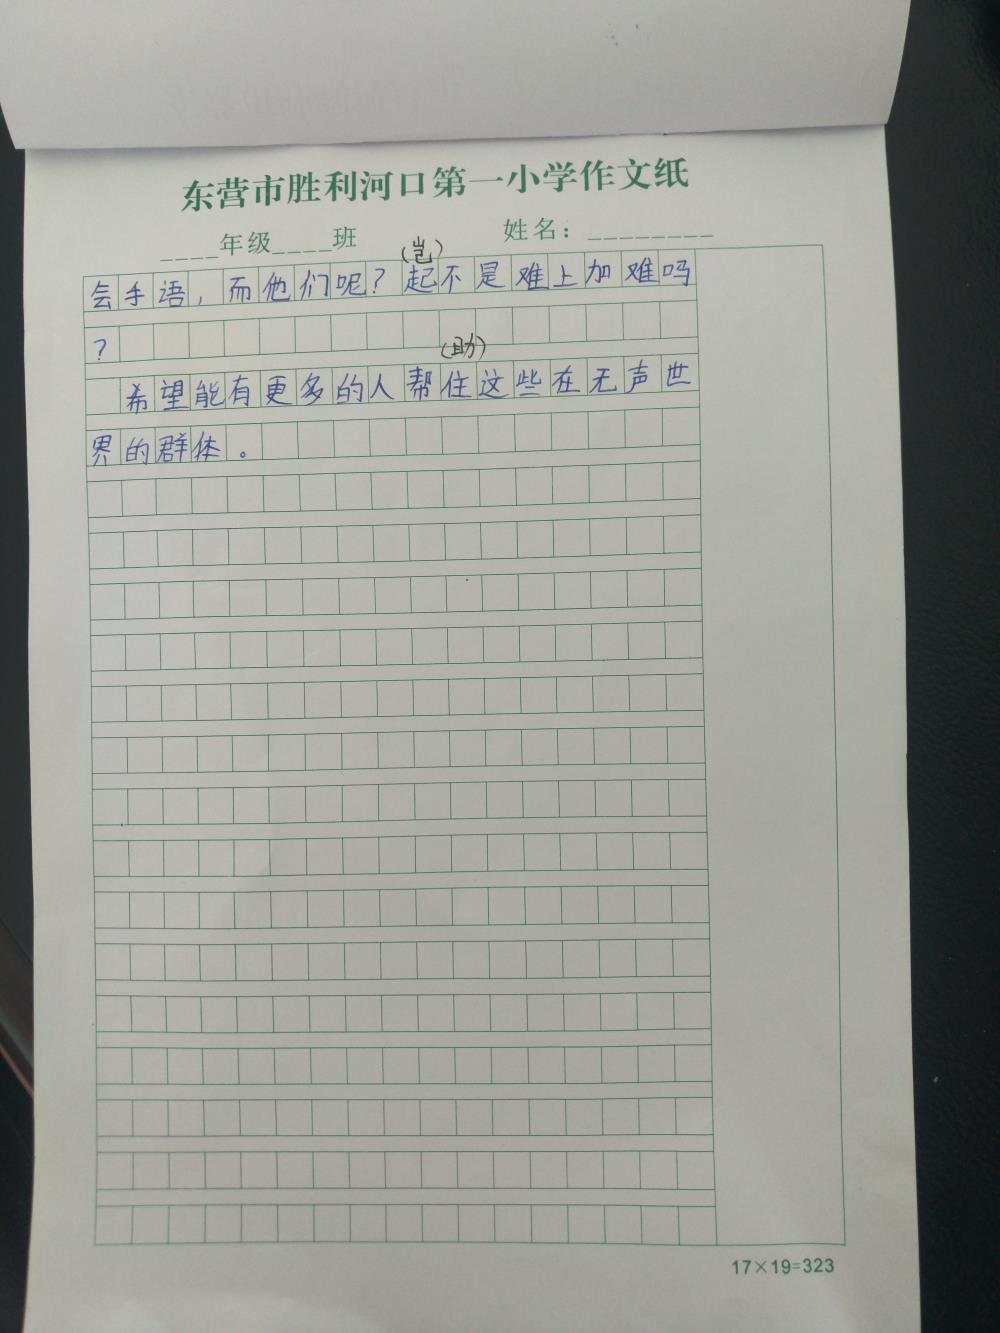 东营市胜利河口第一小学作文纸
____年级____班 姓名：________
(岂)
会手语，而他们呢？起不是难上加难吗
？
(助)
希望能有更多的人帮住这些在无声世
界的群体。
17×19=323